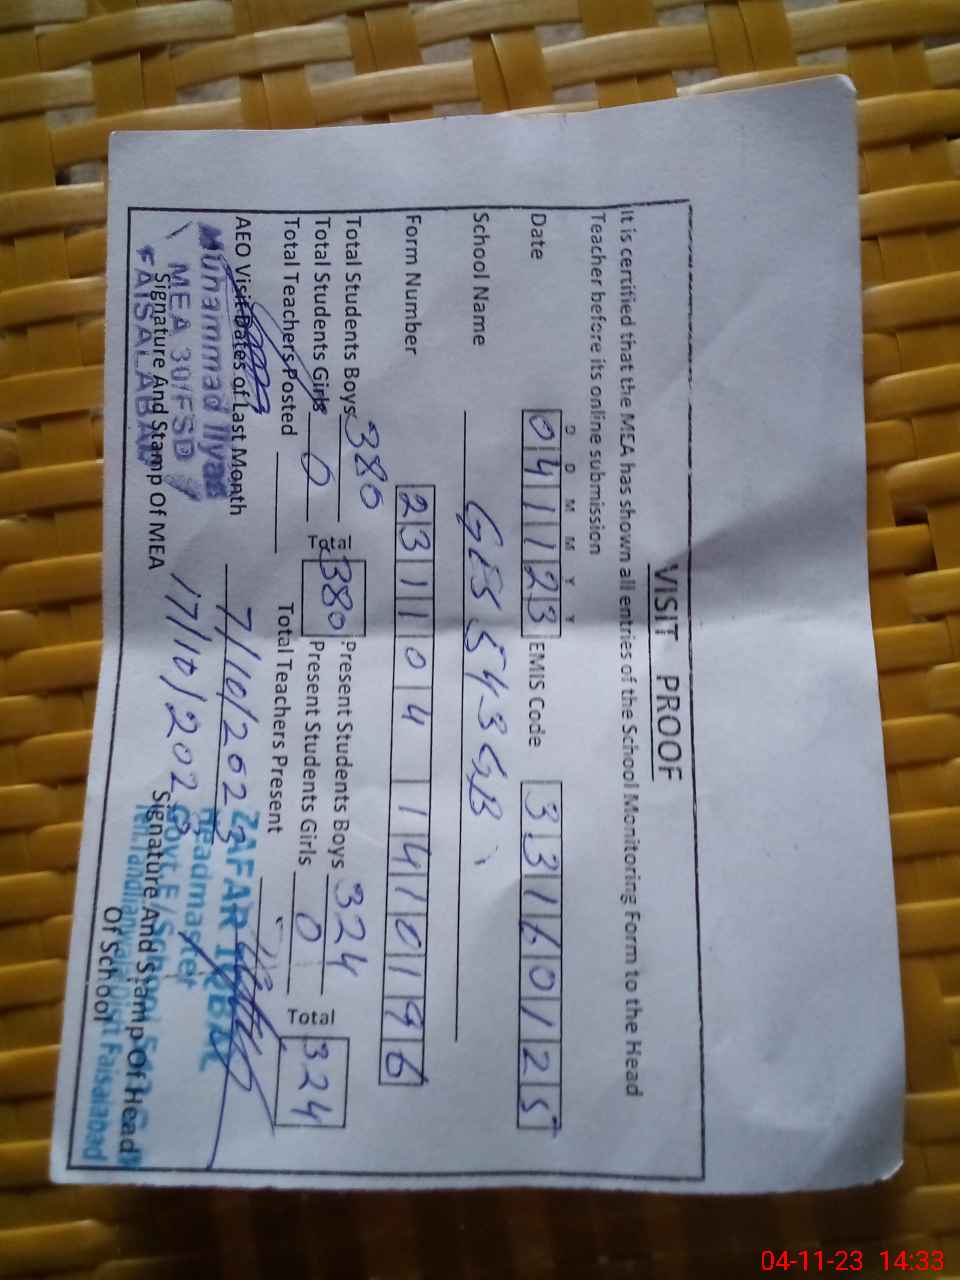 VISIT PROOF
It is certified that the MEA has shown all entries of the School Monitoring Form to the Head
Teacher before its online submission
D D M M Y Y
Date 041123 EMIS Code 33160125
School Name GES 543 GB
Form Number 231104 1410196
Total Students Boys 380 Present Students Boys 324
Total Students Girls 0 Total 380 Present Students Girls 0 Total 324
Total Teachers Posted Total Teachers Present
AEO Visit Dates of Last Month 7/10/2023
17/10/2023
Muhammad Ilyas
MEA 301FSD
FAISALABAD
Signature And Stamp Of MEA
ZAFAR IQBAL
Headmaster
Govt.E/School
Faisalabad
Signature And Stamp Of Head
Of School
04-11-23 14:33